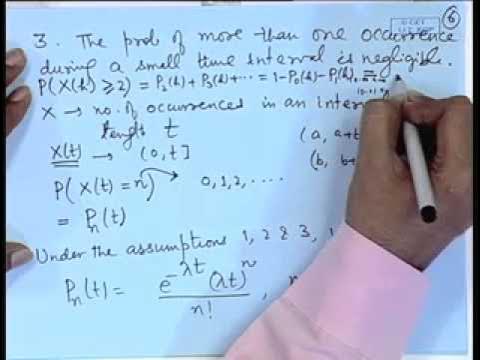 6
3. The prob of more than one occurrence
during a small time interval is negligible.
P(X(h) ≥ 2) = P₂(h) + P₃(h) + ⋯ = 1 - P₀(h) - P₁(h),
X → no. of occurrences in an interval
length t
(a, a+t
X(t) → (0, t]
(b, b+
P(X(t) = n) → 0, 1, 2, ⋯
= Pₙ(t)
Under the assumptions 1, 2 & 3,
Pₙ(t) = e^{-λt} (λt)^n / n! ,